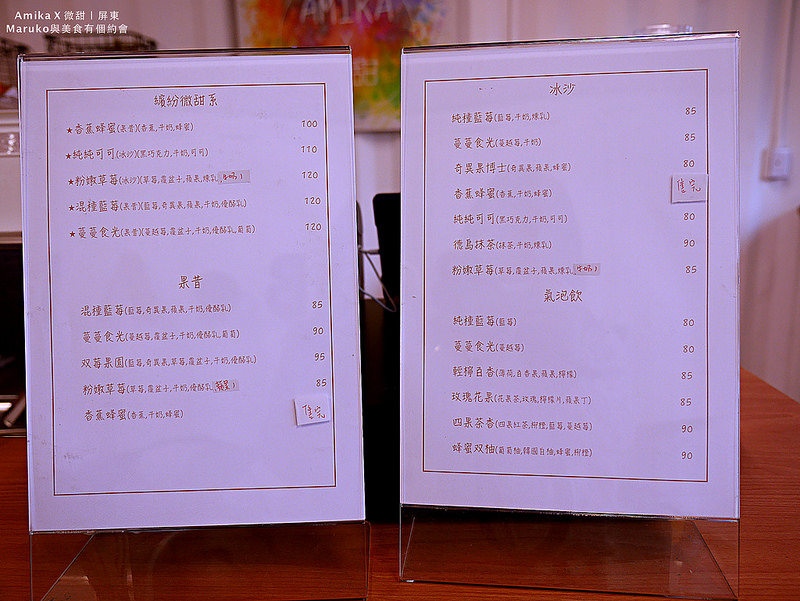 Amika X 微甜 | 屏東
Maruko與美食有個約會
AMIKA X
甜
繽紛微甜系
★香蕉蜂蜜(果昔)(香蕉,牛奶,蜂蜜) 100
★純純可可(冰沙)(黑巧克力,牛奶,可可) 110
★粉嫩草莓(冰沙)(草莓,覆盆子,蘋果,煉乳,牛奶) 120
★混種藍莓(果昔)(藍莓,奇異果,蘋果,牛奶,優酪乳) 120
★蔓蔓食光(果昔)(蔓越莓,覆盆子,牛奶,優酪乳,葡萄) 120
果昔
混種藍莓(藍莓,奇異果,蘋果,牛奶,優酪乳) 85
蔓蔓食光(蔓越莓,覆盆子,牛奶,優酪乳,葡萄) 90
双莓果園(藍莓,奇異果,草莓,覆盆子,牛奶,優酪乳) 95
粉嫩草莓(草莓,覆盆子,牛奶,優酪乳,蘋果) 85
香蕉蜂蜜(香蕉,牛奶,蜂蜜) 售完
冰沙
純種藍莓(藍莓,牛奶,煉乳) 85
蔓蔓食光(蔓越莓,牛奶) 85
奇異果博士(奇異果,蘋果,蜂蜜) 80
香蕉蜂蜜(香蕉,牛奶,蜂蜜) 售完
純純可可(黑巧克力,牛奶,可可) 80
德島抹茶(抹茶,牛奶,煉乳) 90
粉嫩草莓(草莓,覆盆子,蘋果,煉乳,牛奶) 85
氣泡飲
純種藍莓(藍莓) 80
蔓蔓食光(蔓越莓) 80
輕檸百香(薄荷,百香果,蘋果,檸檬) 85
玫瑰花果(花果茶,玫瑰,檸檬片,蘋果丁) 85
四果茶香(四果紅茶,柳橙,藍莓,蔓越莓) 90
蜂蜜双柚(葡萄柚,韓國白柚,蜂蜜,柳橙) 90